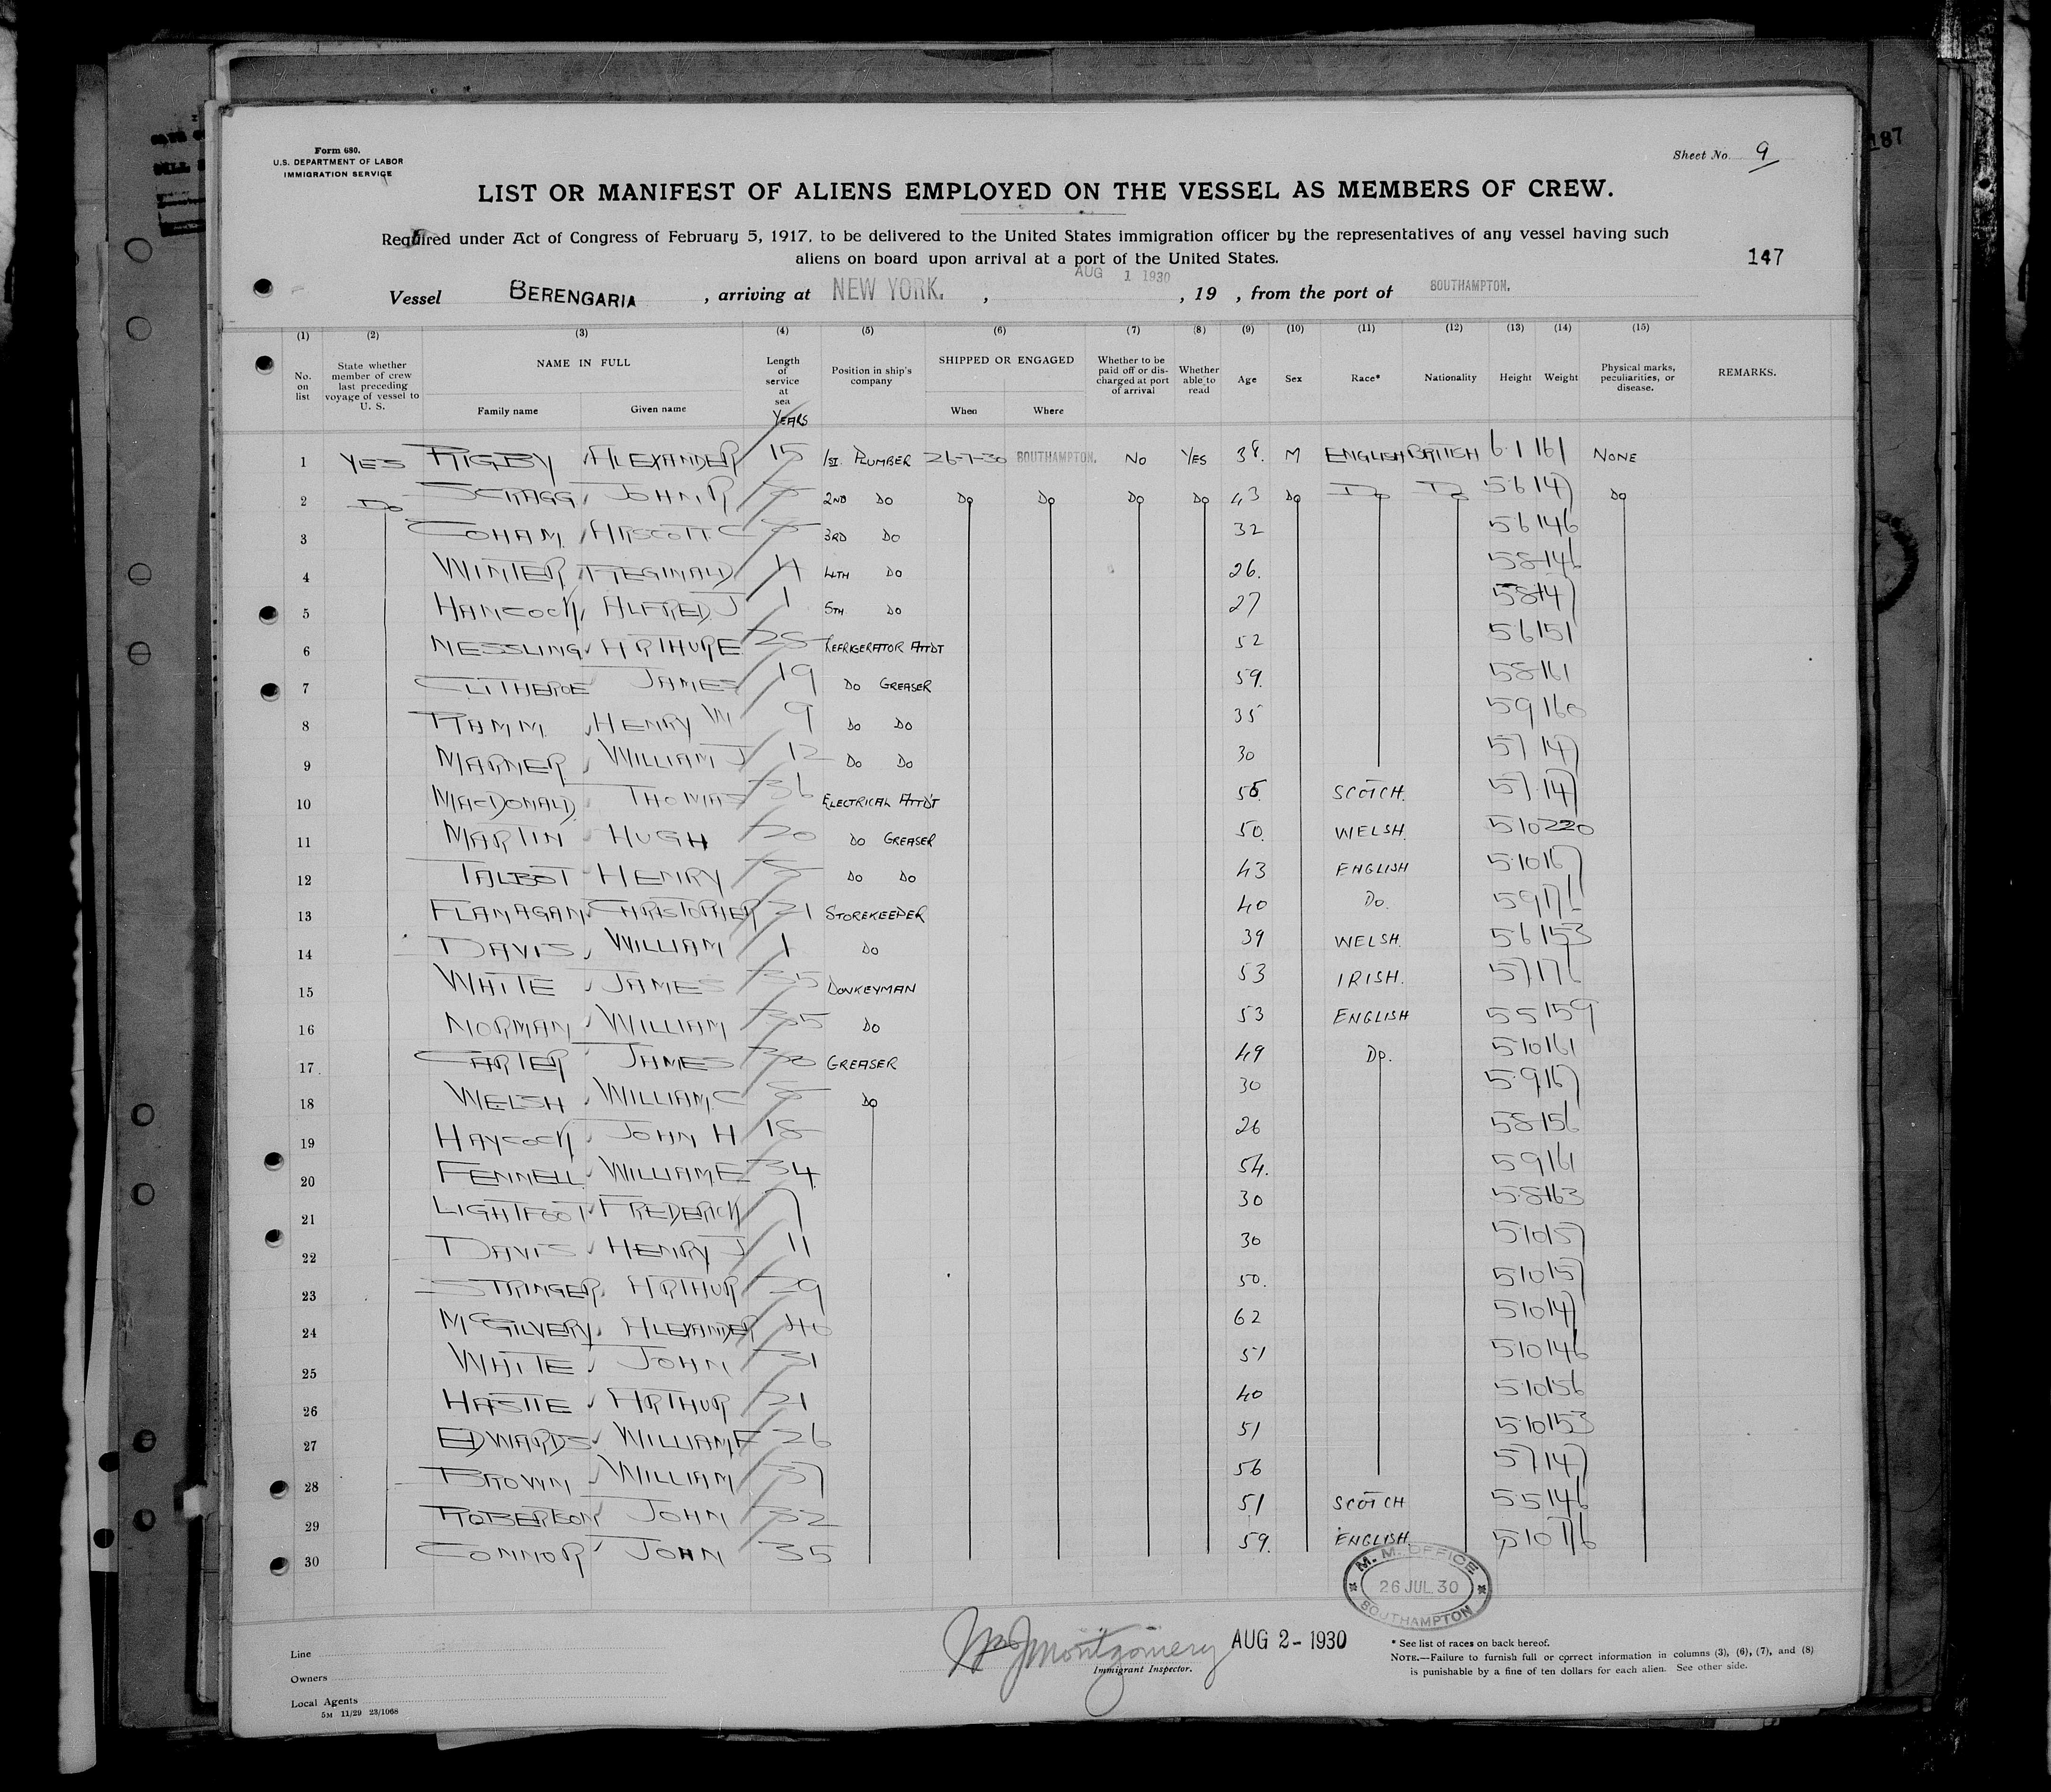 Form 680.
U.S. DEPARTMENT OF LABOR
IMMIGRATION SERVICE
Sheet No. 9
187
LIST OR MANIFEST OF ALIENS EMPLOYED ON THE VESSEL AS MEMBERS OF CREW.
Required under Act of Congress of February 5, 1917, to be delivered to the United States immigration officer by the representatives of any vessel having such
aliens on board upon arrival at a port of the United States.
147
AUG 1 1930
Vessel BERENGARIA , arriving at NEW YORK. , , 19 , from the port of SOUTHAMPTON.
(1) (2) (3) (4) (5) (6) (7) (8) (9) (10) (11) (12) (13) (14) (15)
No. on list State whether member of crew last preceding voyage of vessel to U. S. NAME IN FULL Family name Given name Length of service at sea YEARS Position in ship's company SHIPPED OR ENGAGED When Where Whether to be paid off or discharged at port of arrival Whether able to read Age Sex Race* Nationality Height Weight Physical marks, peculiarities, or disease. REMARKS.
1 YES RIGBY ALEXANDER 15 1ST PLUMBER 26-7-30 SOUTHAMPTON. NO YES 38. M ENGLISH BRITISH 6.1 161 NONE
2 DO SCRAGG JOHN R 2ND DO DO DO DO DO 43 DO DO DO 5 6 147 DO
3 COHAM ARSCOTT. C 3RD DO 32 5 6 146
4 WINTER REGINALD 4 4TH DO 26. 5 8 146
5 HANCOCK ALFRED. J 1 5TH DO 27 5 8 147
6 NESSLING ARTHUR E 25 REFRIGERATOR ATTDT 52 5 6 151
7 CLITHEROE JAMES 19 DO GREASER 59. 5 8 161
8 RAMM HENRY W 9 DO DO 35 5 9 160
9 MARNER WILLIAM J 12 DO DO 30 5 7 147
10 MACDONALD THOMAS 36 ELECTRICAL ATTD'T 55. SCOTCH. 5 7 147
11 MARTIN HUGH 20 DO GREASER 50. WELSH. 5 10 220
12 TALBOT HENRY DO DO 43 ENGLISH 5 10 167
13 FLANAGAN CHRISTOPHER 21 STOREKEEPER 40 DO. 5 9 176
14 DAVIS WILLIAM 1 DO 39 WELSH. 5 6 153
15 WHITE JAMES 35 DONKEYMAN 53 IRISH. 5 7 176
16 NORMAN WILLIAM 35 DO 53 ENGLISH 5 5 159
17 CARTER JAMES 30 GREASER 49 DO. 5 10 161
18 WELSH WILLIAM. C 8 DO 30 5 9 167
19 HAYCOCK JOHN H 18 26 5 8 156
20 FENNELL WILLIAM. E 34 54. 5 9 161
21 LIGHTFOOT FREDERICK 7 30 5 8 163
22 DAVIS HENRY J 11 30 5 10 157
23 STRINGER ARTHUR 29 50. 5 10 157
24 MCGILVERY ALEXANDER 40 62 5 10 147
25 WHITE JOHN 31 51 5 10 146
26 HASTIE ARTHUR 21 40 5 10 156
27 EDWARDS WILLIAM F 26 51 5 10 153
28 BROWN WILLIAM 37 56 5 7 147
29 ROBERTSON JOHN 32 51 SCOTCH 5 5 146
30 CONNOR JOHN 35 59. ENGLISH. 5 10 176
M. M. OFFICE
26 JUL 30
SOUTHAMPTON
Line
Owners
Local Agents
5M 11/29 23/1068
Montgomery AUG 2 - 1930
Immigrant Inspector.
* See list of races on back hereof.
NOTE.—Failure to furnish full or correct information in columns (3), (6), (7), and (8)
is punishable by a fine of ten dollars for each alien. See other side.